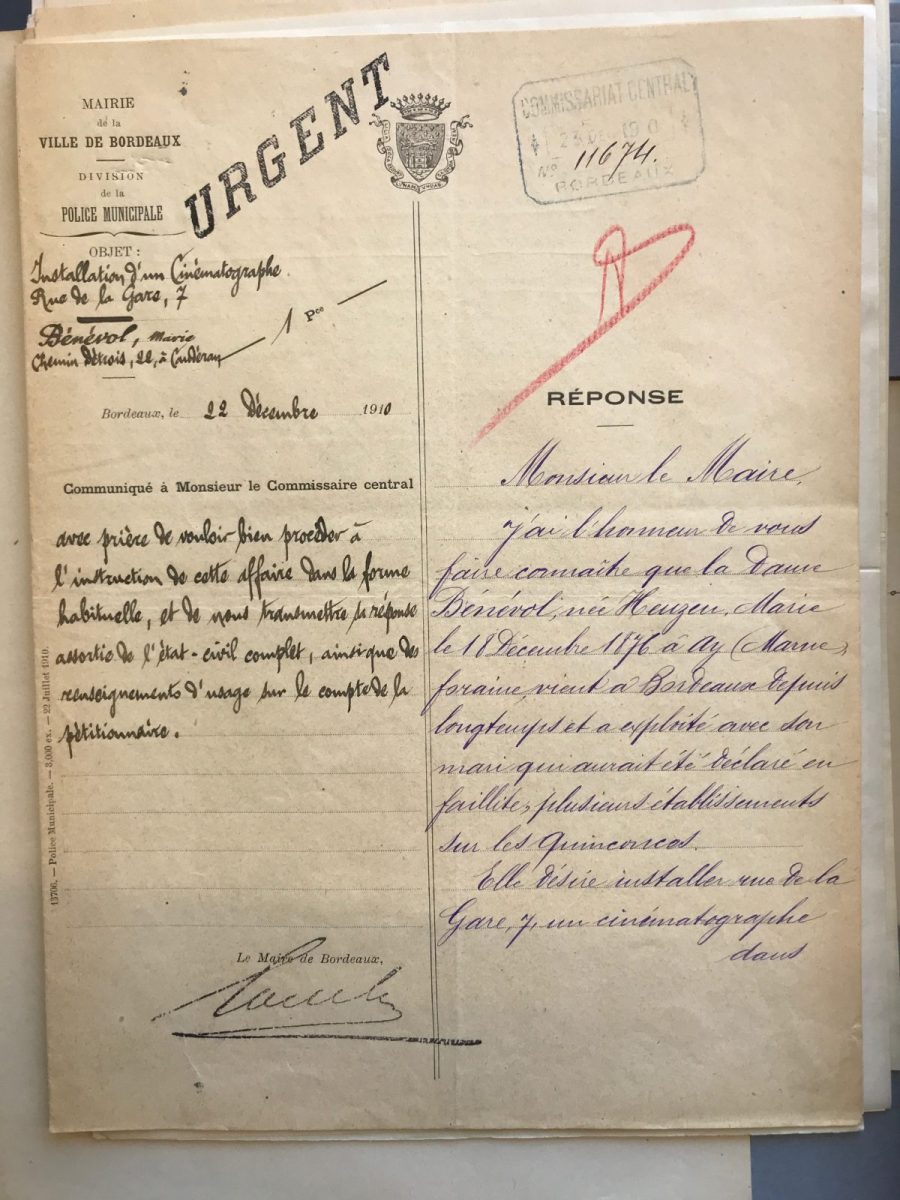 MAIRIE
de la
VILLE DE BORDEAUX
DIVISION
de la
POLICE MUNICIPALE
URGENT
OBJET :
Installation d'un Cinématographe
Rue de la Gare, 7
Bénévol, Marie
Chemin Détrois, 22, à Caudéran
1 Pce
Bordeaux, le 22 Décembre 1910
Communiqué à Monsieur le Commissaire central
avec prière de vouloir bien procéder à
l'instruction de cette affaire dans la forme
habituelle, et de nous transmettre sa réponse
assortie de l'état-civil complet, ainsi que des
renseignements d'usage sur le compte de la
pétitionnaire.
Le Maire de Bordeaux,
13706. — Police Municipale. — 3,000 ex. — 22 Juillet 1910.
COMMISSARIAT CENTRAL
23 190
No 11674.
BORDEAUX
RÉPONSE
Monsieur le Maire,
J'ai l'honneur de vous
faire connaître que la Dame
Bénévol, née Heuzeu, Marie
le 18 Décembre 1876 à Ay (Marne)
foraine, vient à Bordeaux depuis
longtemps et a exploité avec son
mari qui aurait été déclaré en
faillite, plusieurs établissements
sur les Quinconces.
Elle désire installer rue de la
Gare, 7, un cinématographe
dans